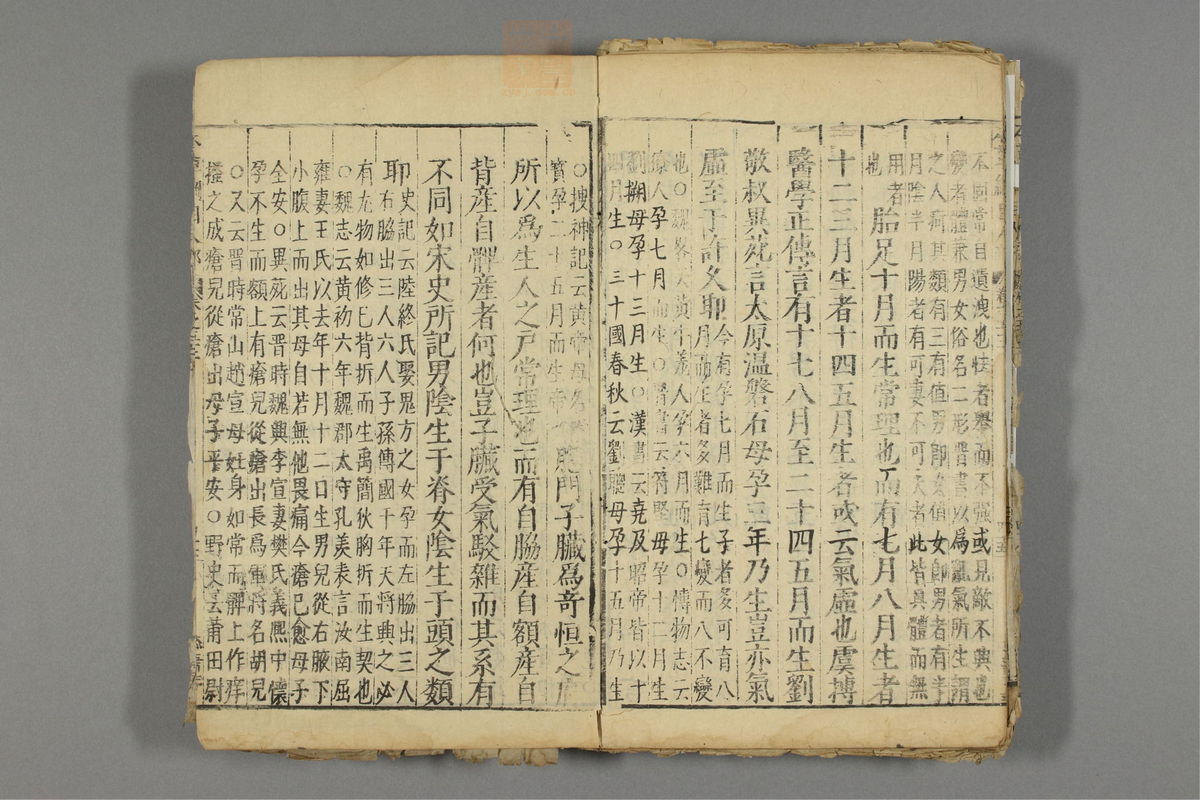 本同常自遺洩也怯者舉而不强或見敵不興也
變者體兼男女俗名二形晋書以為亂氣所生謂
之人痾其類有三有值男即女值女即男者有半
月陰半月陽者有可妻不可夫者此皆具體而無
用者
也
胎足十月而生常理也而有七月八月生者
十二三月生者十四五月生者或云氣虛也虞摶
醫學正傳言有十七八月至二十四五月而生劉
敬叔異苑言太原温磐石母孕三年乃生豈亦氣
虛至于許久耶
今有孕七月而生子者多可育八
月而生者多難育七變而八不變
也○魏畧云黄牛羌人孕六月而生○博物志云
獠人孕七月而生○晋書云苻堅母孕十二月生
劉搠母孕十三月生○漢書云堯及昭帝皆以十
四月生○三十國春秋云劉聰母孕十五月乃生
○搜神記云黄帝母名
寳孕二十五月而生
胞門子臟爲奇恒之府
所以爲生人之戸常理也而有自脇産自額産自
背産自髀産者何也豈子臟受氣駁雜而其系有
不同如宋史所記男陰生于脊女陰生于頭之類
耶
史記云陸終氏娶鬼方之女孕而左脇出三人
右脇出三人六人子孫傳國千年天將興之必
有尤物如修巳背折而生禹簡狄胸折而生契也
○魏志云黄初六年魏郡太守孔羨表言汝南屈
雍妻王氏以去年十月十二日生男兒從右腋下
小腹上而出其母自若無他畏痛今瘡已愈母子
全安○異苑云晋時魏興李宣妻樊氏義熙中懷
孕不生而額上有瘡兒從瘡出長爲軍將名胡兒
○又云晋時常山趙宣母妊身如常而髀上作痒
搔之成瘡兒從瘡出母子平安○野史云莆田尉